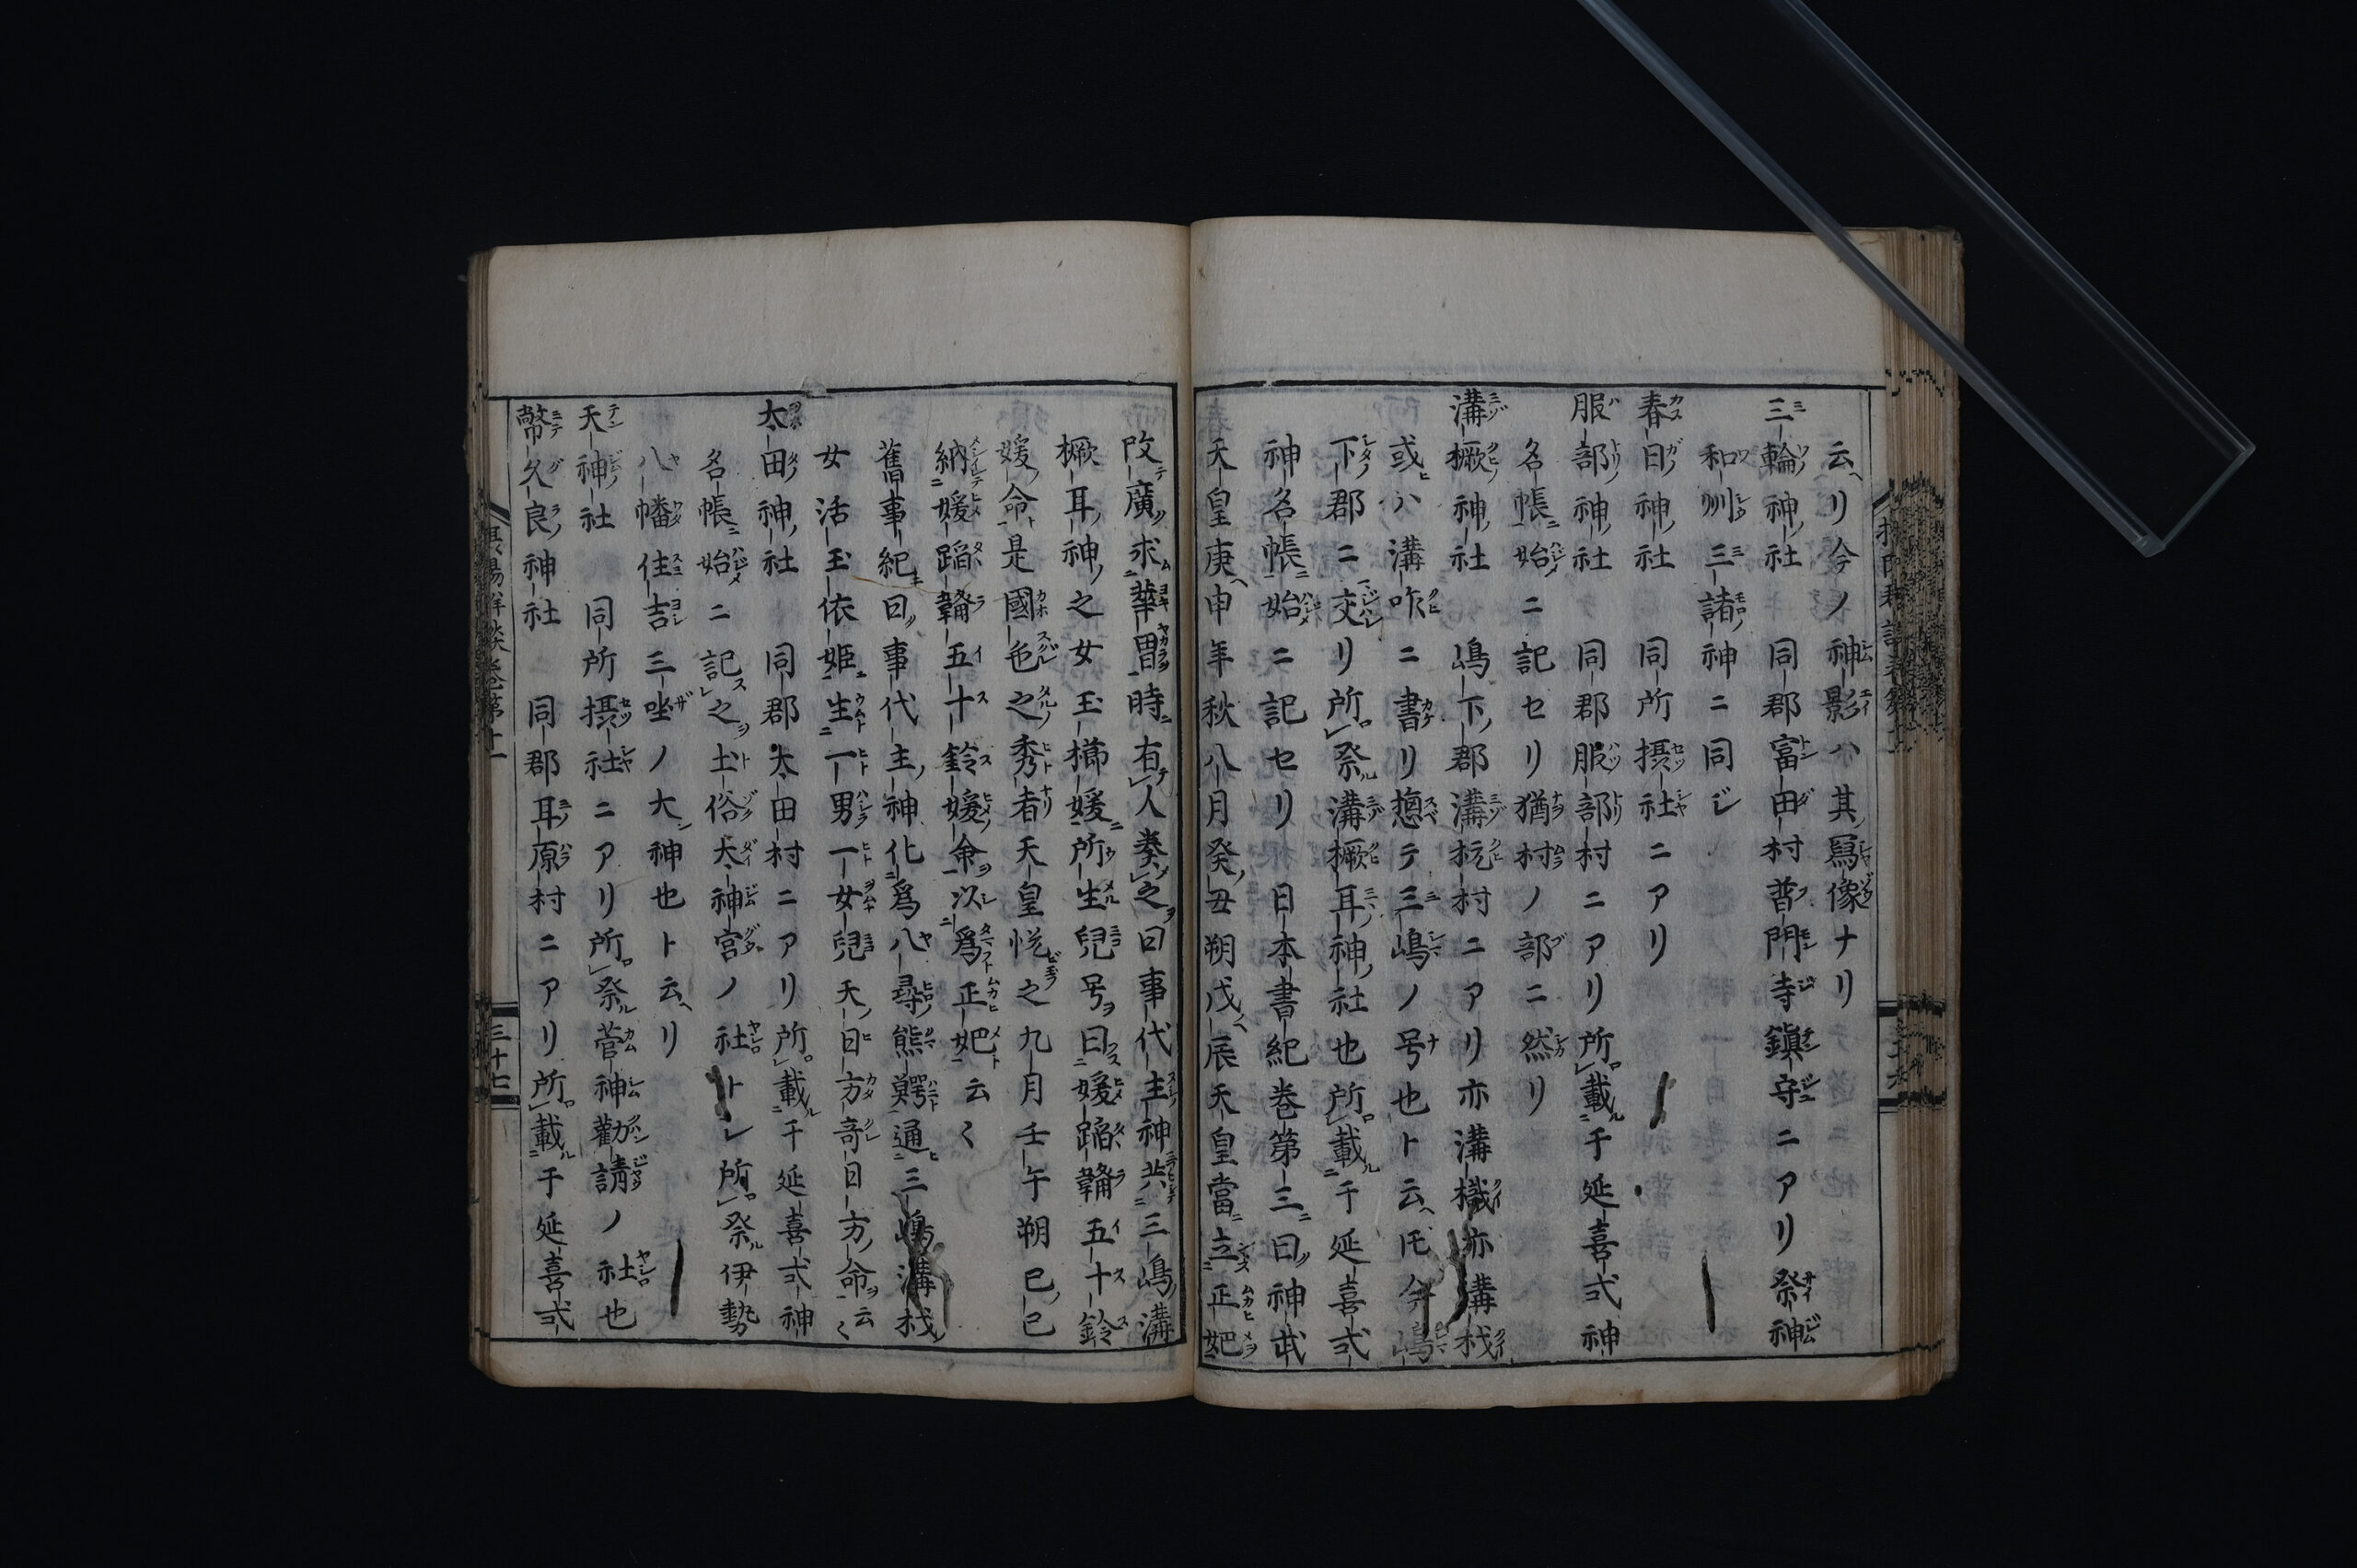 云リ今ノ神影ハ其寫像ナリ
三輪神社　同郡富田村普門寺鎮守ニアリ祭神
和州三諸神ニ同シ
春日神社　同所摂社ニアリ
服部神社　同郡服部村ニアリ所載于延喜式神
名帳始ニ記セリ猶村ノ部ニ然リ
溝橛神社　嶋下郡溝杭村ニアリ亦溝樴亦溝杙
或ハ溝咋ニ書リ摠テ三嶋ノ号也ト云ヘ𪜈今嶋
下郡ニ交リ所祭溝橛耳神社也所載于延喜式
神名帳始ニ記セリ　日本書紀巻第三曰神武
天皇庚申年秋八月癸丑朔戊辰天皇當立正妃
改廣求華胄時有人奏之曰事代主神共三嶋溝
橛耳神之女玉櫛媛所生兒号曰媛蹈韛五十鈴
媛命是國色之秀者天皇悦之九月壬午朔巳巳
納媛蹈韛五十鈴媛命以爲正妃云〱
舊事紀曰事代主神化爲八尋熊鰐通三嶋溝杙
女活玉依姫生一男一女兒天日方奇日方命云〱
太田神社　同郡太田村ニアリ所載于延喜式神
名帳始ニ記之土俗太神宮ノ社トレ所祭伊勢
八幡住吉三坐ノ大神也ト云リ
天神社　同所摂社ニアリ所祭菅神勸請ノ社也
幣久良神社　同郡耳原村ニアリ所載于延喜式
三十七